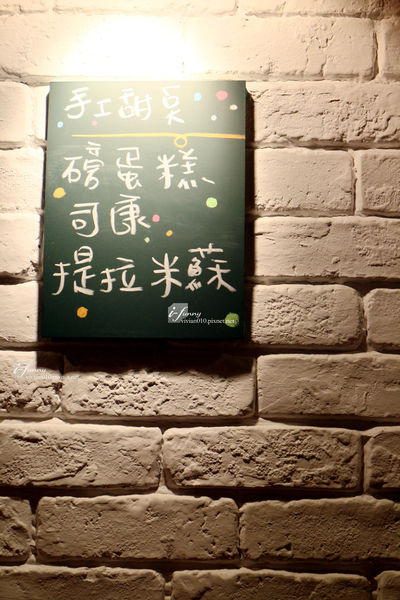 手工甜點
磅蛋糕
司康
提拉米蘇
i-Funny
vivian010.pixnet.net
i-Funny
vivian010.pixnet.net